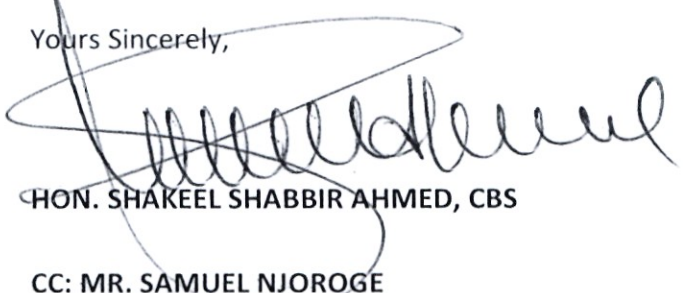 Yours Sincerely,
HON. SHAKEEL SHABBIR AHMED, CBS
CC: MR. SAMUEL NJOROGE